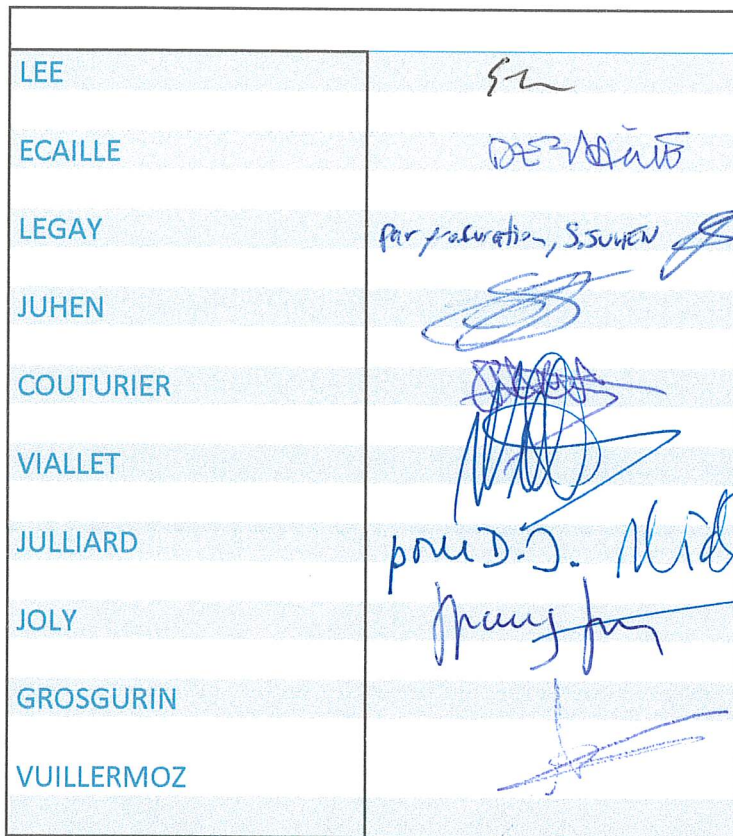 LEE
ECAILLE
LEGAY par procuration, S. JUHEN
JUHEN
COUTURIER
VIALLET
JULLIARD pour D. J.
JOLY
GROSGURIN
VUILLERMOZ